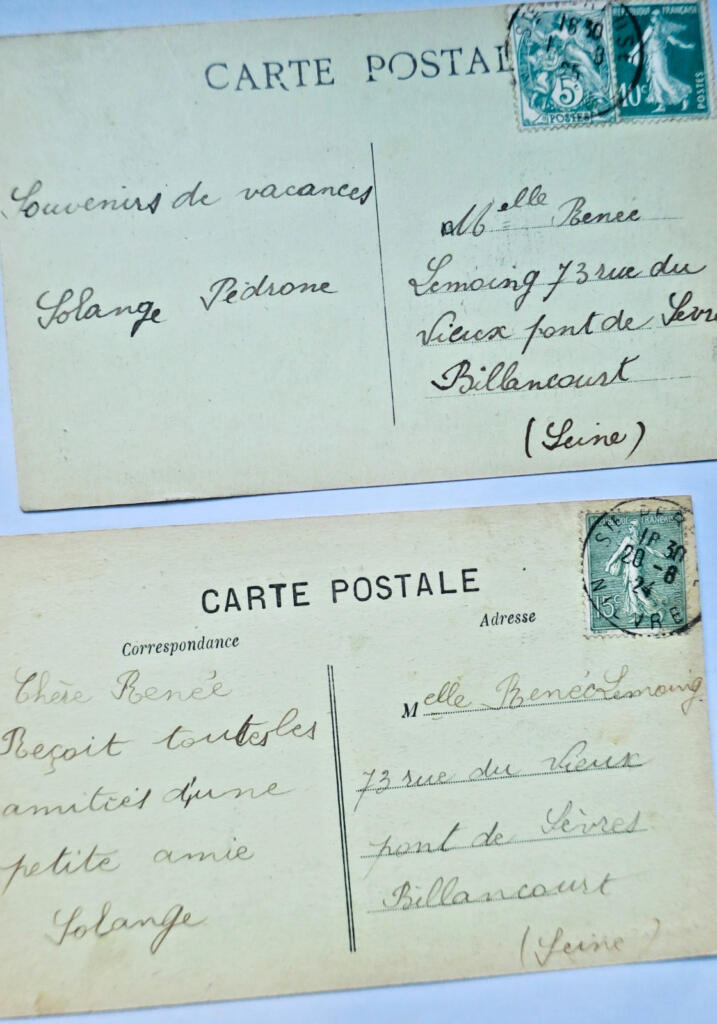 CARTE POSTAL
18 30
25
5c
POSTES
RÉPUBLIQUE FRANÇAISE
10c
POSTES
Souvenirs de vacances
Solange Pédrone
Melle Renée
Lemoing 73 rue du
Vieux pont de Sèvre
Billancourt
(Seine)
CARTE POSTALE
Correspondance
Adresse
RÉPUBLIQUE FRANÇAISE
18 30
20 - 8
24
15c
NIEVRE
Chère Renée
Reçoit toutes les
amitiés d'une
petite amie
Solange
Melle Renée Lemoing
73 rue du Vieux
pont de Sèvres
Billancourt
(Seine)